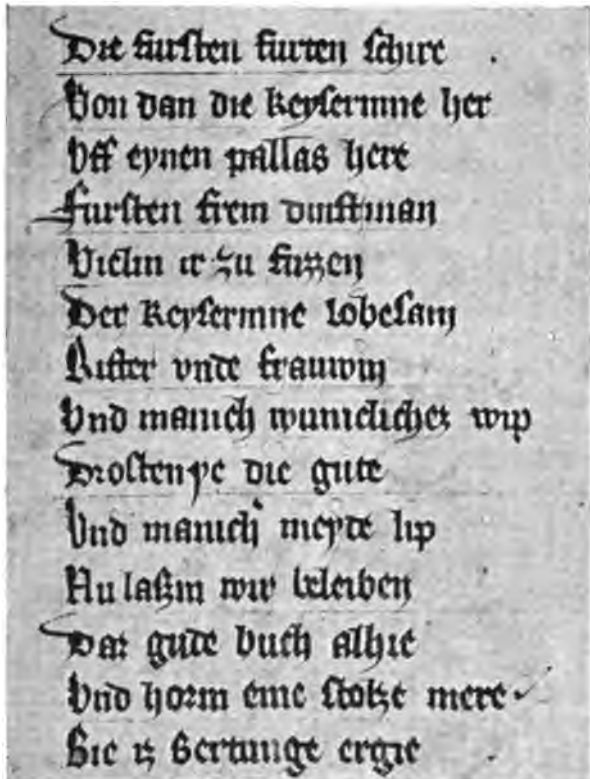 Die fursten furten schire
Von dan die keyserinne her
Uff eynen pallas here
Fursten frein dinstman
Vieln ir zu fuzzen
Der keyserinne lobesam
Ritter unde frauwin
Und manich wuniclichez wip
Die gute
Und manich meyde lip
Nu laßin wir beleiben
Daz gute buch alhie
Und horin eine stoltze mere
Bie iz Gertunge ergie